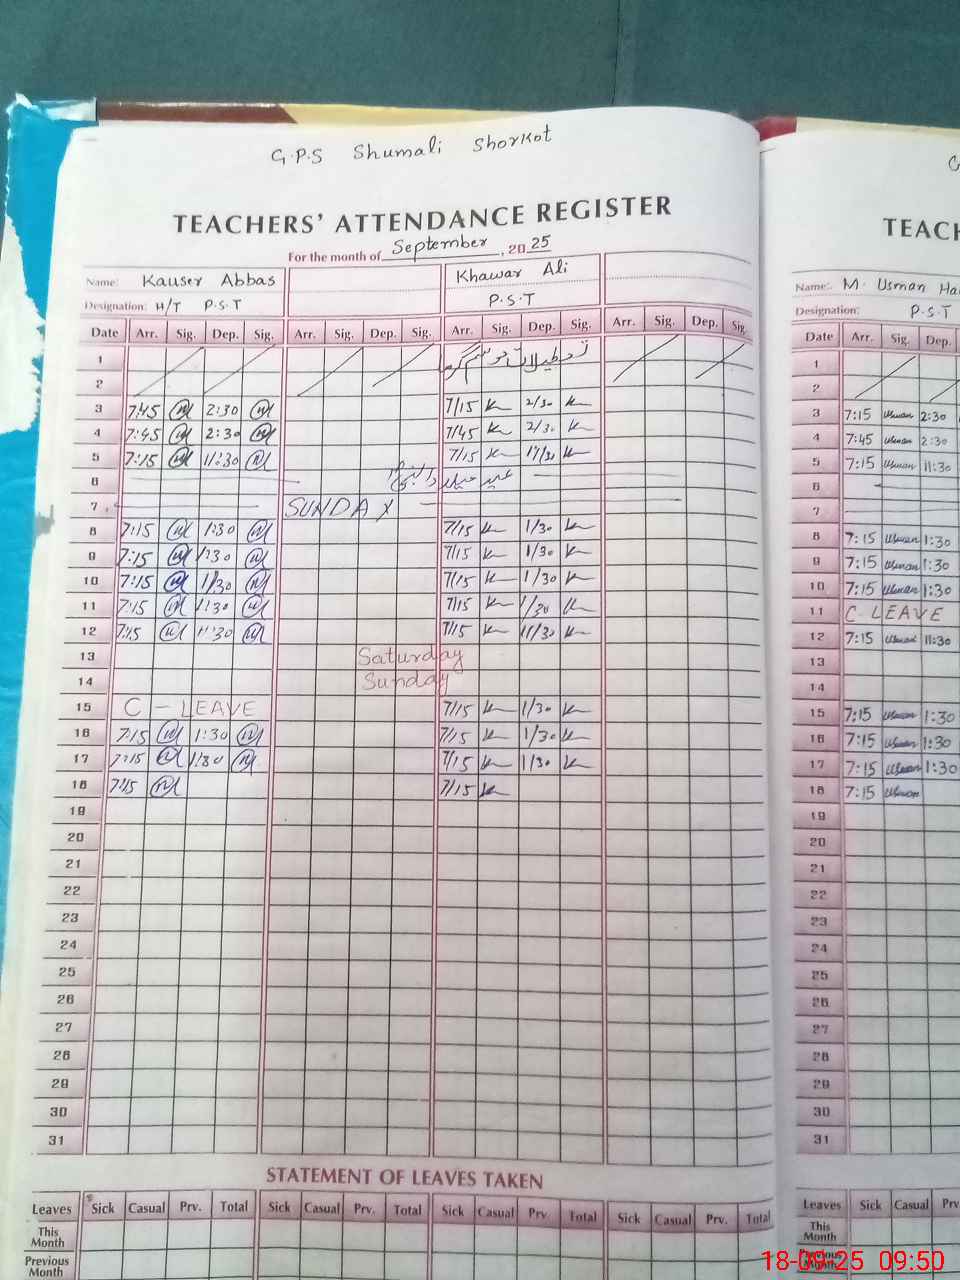 G.P.S Shumali Shorkot
TEACHERS' ATTENDANCE REGISTER
For the month of September, 2025
Name: Kauser Abbas Khawar Ali
Designation: H/T P.S.T P.S.T
Date Arr. Sig. Dep. Sig. Arr. Sig. Dep. Sig. Arr. Sig. Dep. Sig. Arr. Sig. Dep. Sig.
1 تعطیلات موسم گرما
2
3 7:45 2:30 7/15 2/30
4 7:45 2:30 7/45 2/30
5 7:15 11:30 7/15 11/30
6 عید میلاد النبی
7 SUNDAY
8 7:15 1:30 7/15 1/30
9 7:15 1:30 7/15 1/30
10 7:15 1/30 7/15 1/30
11 7:15 1:30 7/15 1/30
12 7:15 11:30 7/15 11/30
13 Saturday
14 Sunday
15 C-LEAVE 7/15 1/30
16 7:15 1:30 7/15 1/30
17 7:15 1:30 7/15 1/30
18 7:15 7/15
19
20
21
22
23
24
25
26
27
28
29
30
31
STATEMENT OF LEAVES TAKEN
Leaves Sick Casual Prv. Total Sick Casual Prv. Total Sick Casual Prv. Total Sick Casual Prv. Total
This Month
Previous Month
TEACH
Name:- M. Usman Ha
Designation: P.S.T
Date Arr. Sig. Dep.
1
2
3 7:15 Usman 2:30
4 7:45 Usman 2:30
5 7:15 Usman 11:30
6
7
8 7:15 Usman 1:30
9 7:15 Usman 1:30
10 7:15 Usman 1:30
11 C-LEAVE
12 7:15 Usman 11:30
13
14
15 7:15 Usman 1:30
16 7:15 Usman 1:30
17 7:15 Usman 1:30
18 7:15 Usman
19
20
21
22
23
24
25
26
27
28
29
30
31
Leaves Sick Casual Prv
This Month
Previous Month
18-09-25 09:50